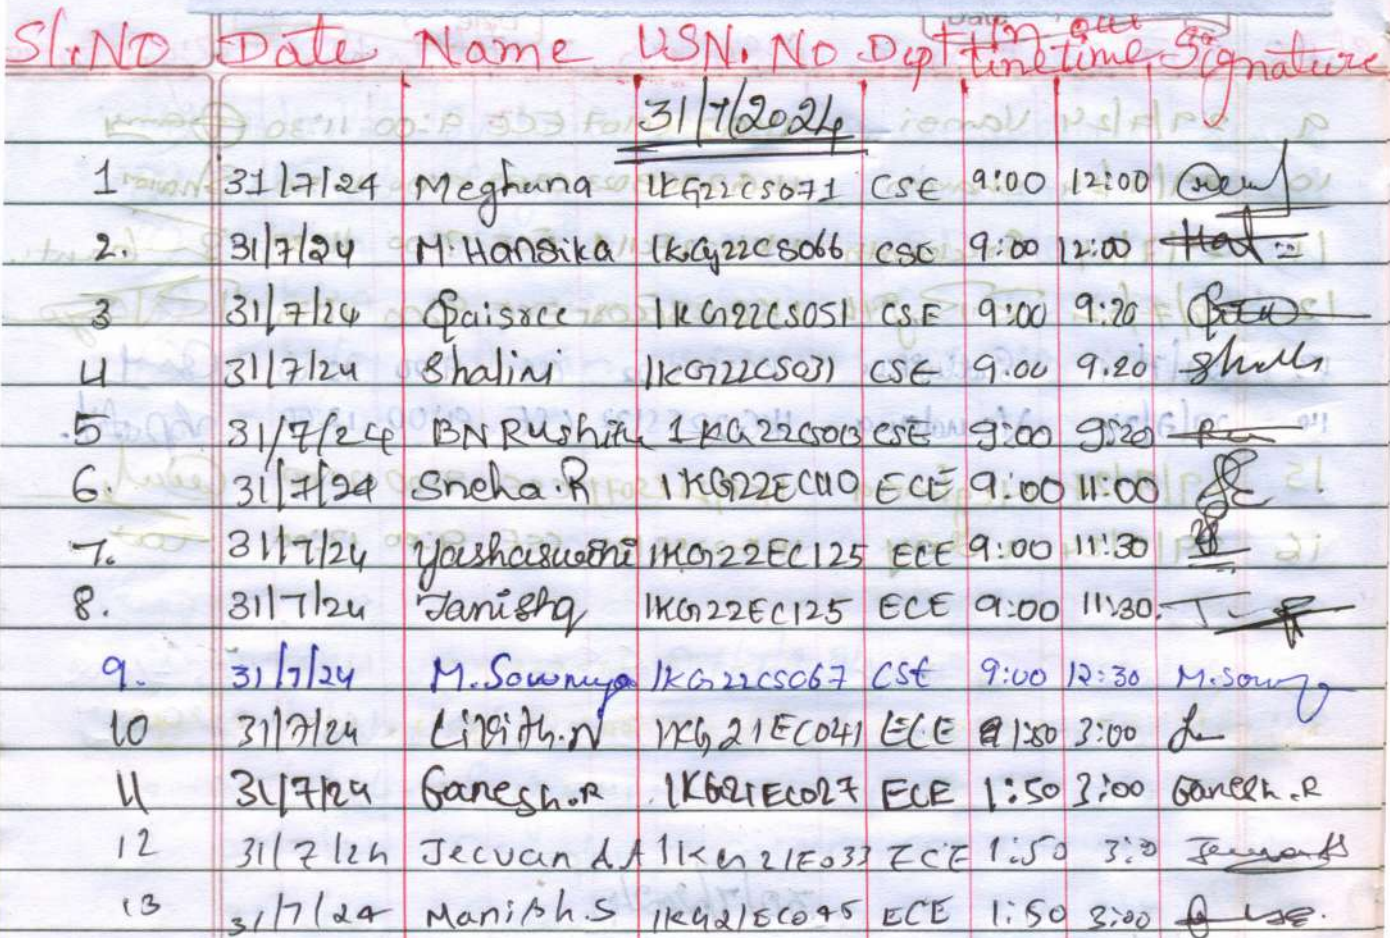 Sl.NO Date Name USN.NO Dept In time out time Signature
31/7/2024
1 31/7/24 Meghana 1KG22CS071 CSE 9:00 12:00
2. 31/7/24 M.Hansika 1KG22CS066 CSE 9:00 12:00
3 31/7/24 Saisree 1KG22CS051 CSE 9:00 9:20
4 31/7/24 Shalini 1KG22CS031 CSE 9:00 9:20
5 31/7/24 BN Rushita CSE 9:00 9:20
6. 31/7/24 Sneha.R 1KG22EC110 ECE 9:00 11:00
7. 31/7/24 1KG22EC125 ECE 9:00 11:30
8. 31/7/24 Tanishq 1KG22EC125 ECE 9:00 11:30
9. 31/7/24 M.Sowmya 1KG22CS067 CSE 9:00 12:30 M.Sowmya
10 31/7/24 Likith.N 1KG21EC041 ECE 1:50 3:00
11 31/7/24 Ganesh.R 1KG21EC027 ECE 1:50 3:00 Ganesh.R
12 31/7/24 Jeevan A.A 1KG21E033 ECE 1:50
13 31/7/24 Manish.S 1KG21EC045 ECE 1:50 3:00